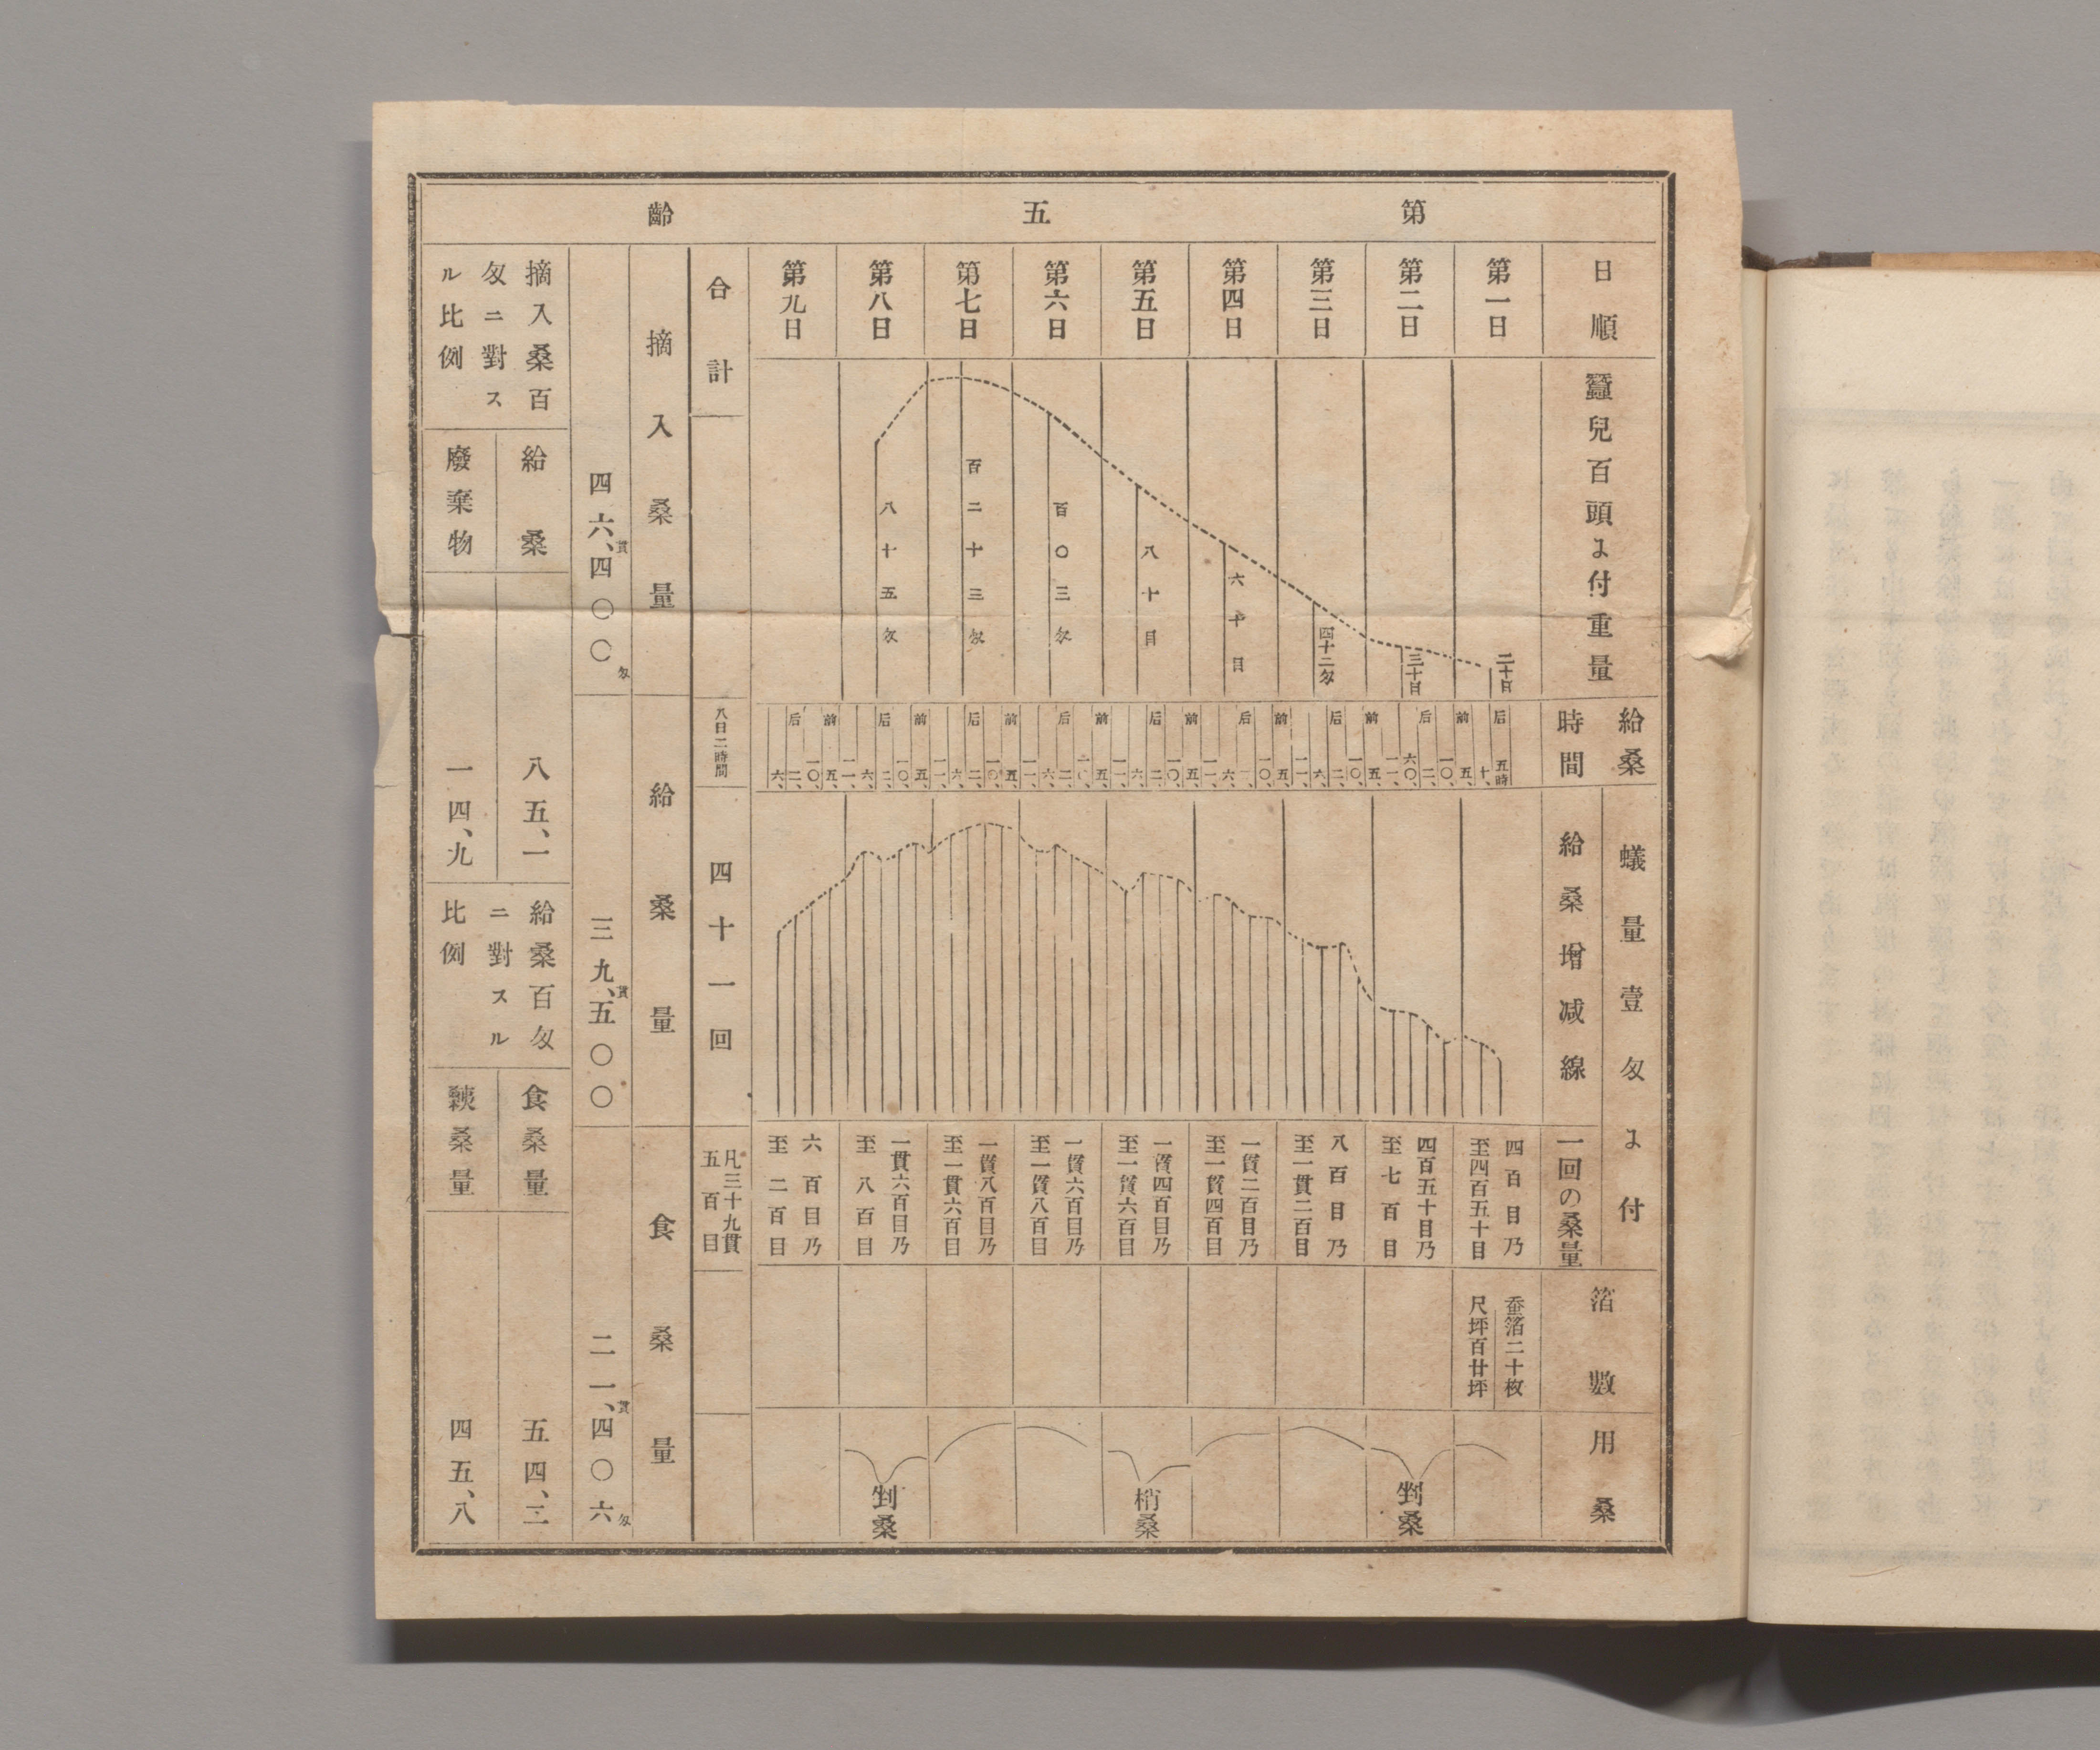 第五齡
日順
第一日
第二日
第三日
第四日
第五日
第六日
第七日
第八日
第九日
合計
蠶兒百頭ニ付重量
二十目
三十目
四十二匁
六十目
八十目
百〇三匁
百二十三匁
八十五匁
給桑時間
后 五時、十、
前 五、一〇、
后 二、六、
八日二時間
蟻量壹匁ニ付
給桑增减線
四十一回
一回の桑量
四百目乃
至四百五十目
四百五十目乃
至七百目
八百目乃
至一貫二百目
一貫二百目乃
至一貫四百目
一貫四百目乃
至一貫六百目
一貫六百目乃
至一貫八百目
一貫八百目乃
至一貫六百目
一貫六百目乃
至八百目
六百目乃
至二百目
凡三十九貫
五百目
箔數
蚕箔二十枚
尺坪百廿坪
用桑
剉桑
梢桑
剉桑
摘入桑量
四六、貫四〇〇匁
給桑量
三九、貫五〇〇
食桑量
二一、貫四〇六匁
摘入桑百
匁ニ對ス
ル比例
給桑
八五、一
廢棄物
一四、九
給桑百匁
ニ對スル
比例
食桑量
五四、二
殘桑量
四五、八